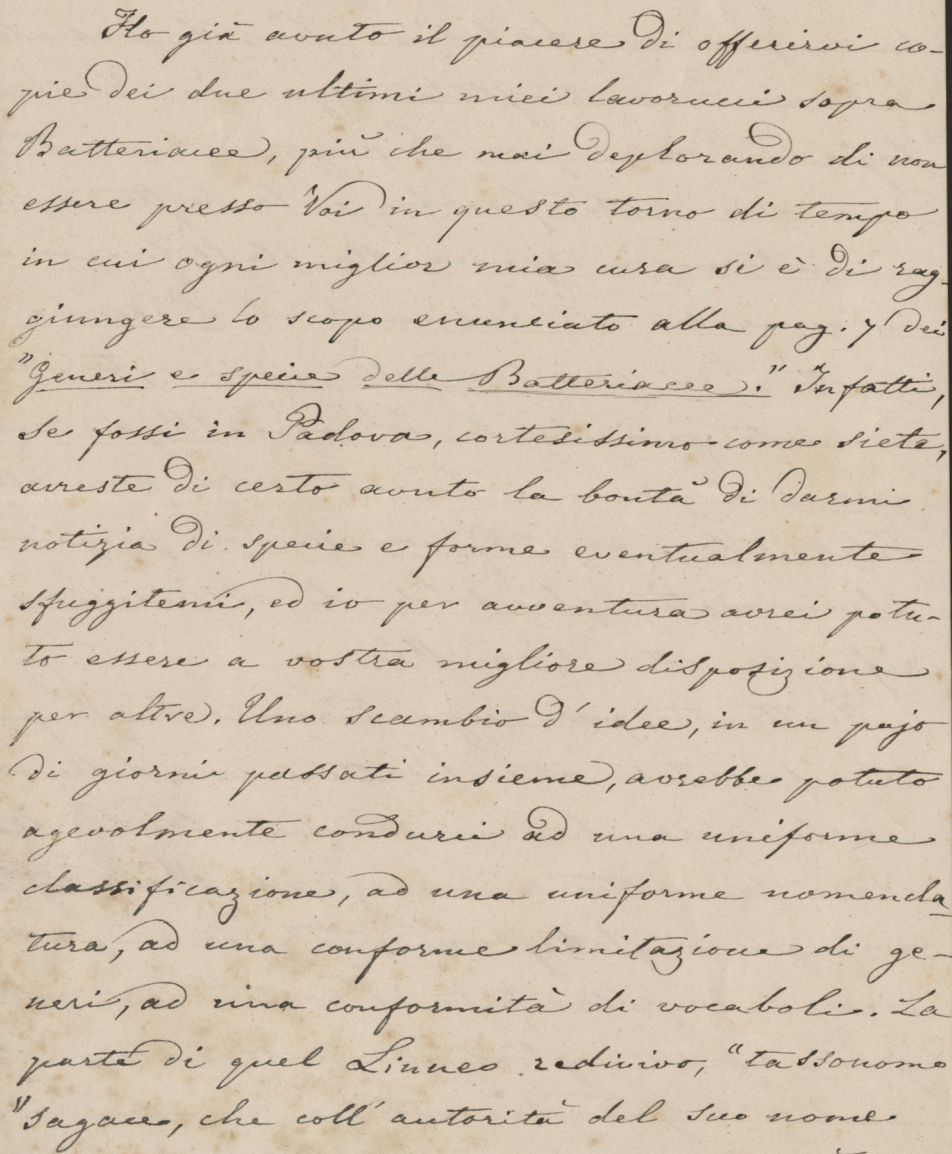 Ho già avuto il piacere di offerirvi co-
pie dei due ultimi miei lavorucci sopra
Batteriacee, più che mai deplorando di non
essere presso Voi in questo torno di tempo
in cui ogni miglior mia cura si è di rag-
giungere lo scopo enunciato alla pag. 7 dei
"Generi e specie delle Batteriacee." Infatti,
se fossi in Padova, cortesissimo come siete,
avreste di certo avuto la bontà di darmi
notizia di specie e forme eventualmente
sfuggitemi, ed io per avventura avrei potu-
to essere a vostra migliore disposizione
per altre. Uno scambio d'idee, in un pajo
di giorni passati insieme, avrebbe potuto
agevolmente condurci ad una uniforme
classificazione, ad una uniforme nomencla-
tura, ad una conforme limitazione di ge-
neri, ad una conformità di vocaboli. La
parte di quel Linneo redivivo, "tassonomo
"sagace, che coll'autorità del suo nome